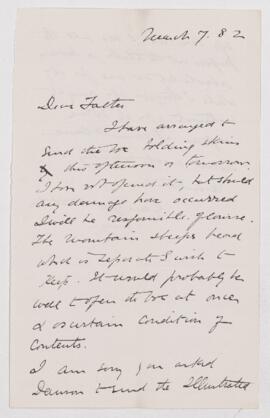 March 7. 82
Dear Salter
I have arranged to
send the box holding skins
this afternoon or tomorrow.
I have not opened it, but should
any damage have occurred
I will be responsible of course.
The mountain sheeps head
which is separate I wish to
keep. It would probably be
well to open the box at once
& ascertain condition of
contents.
I am sorry you asked
Dawson to send the Illustrated